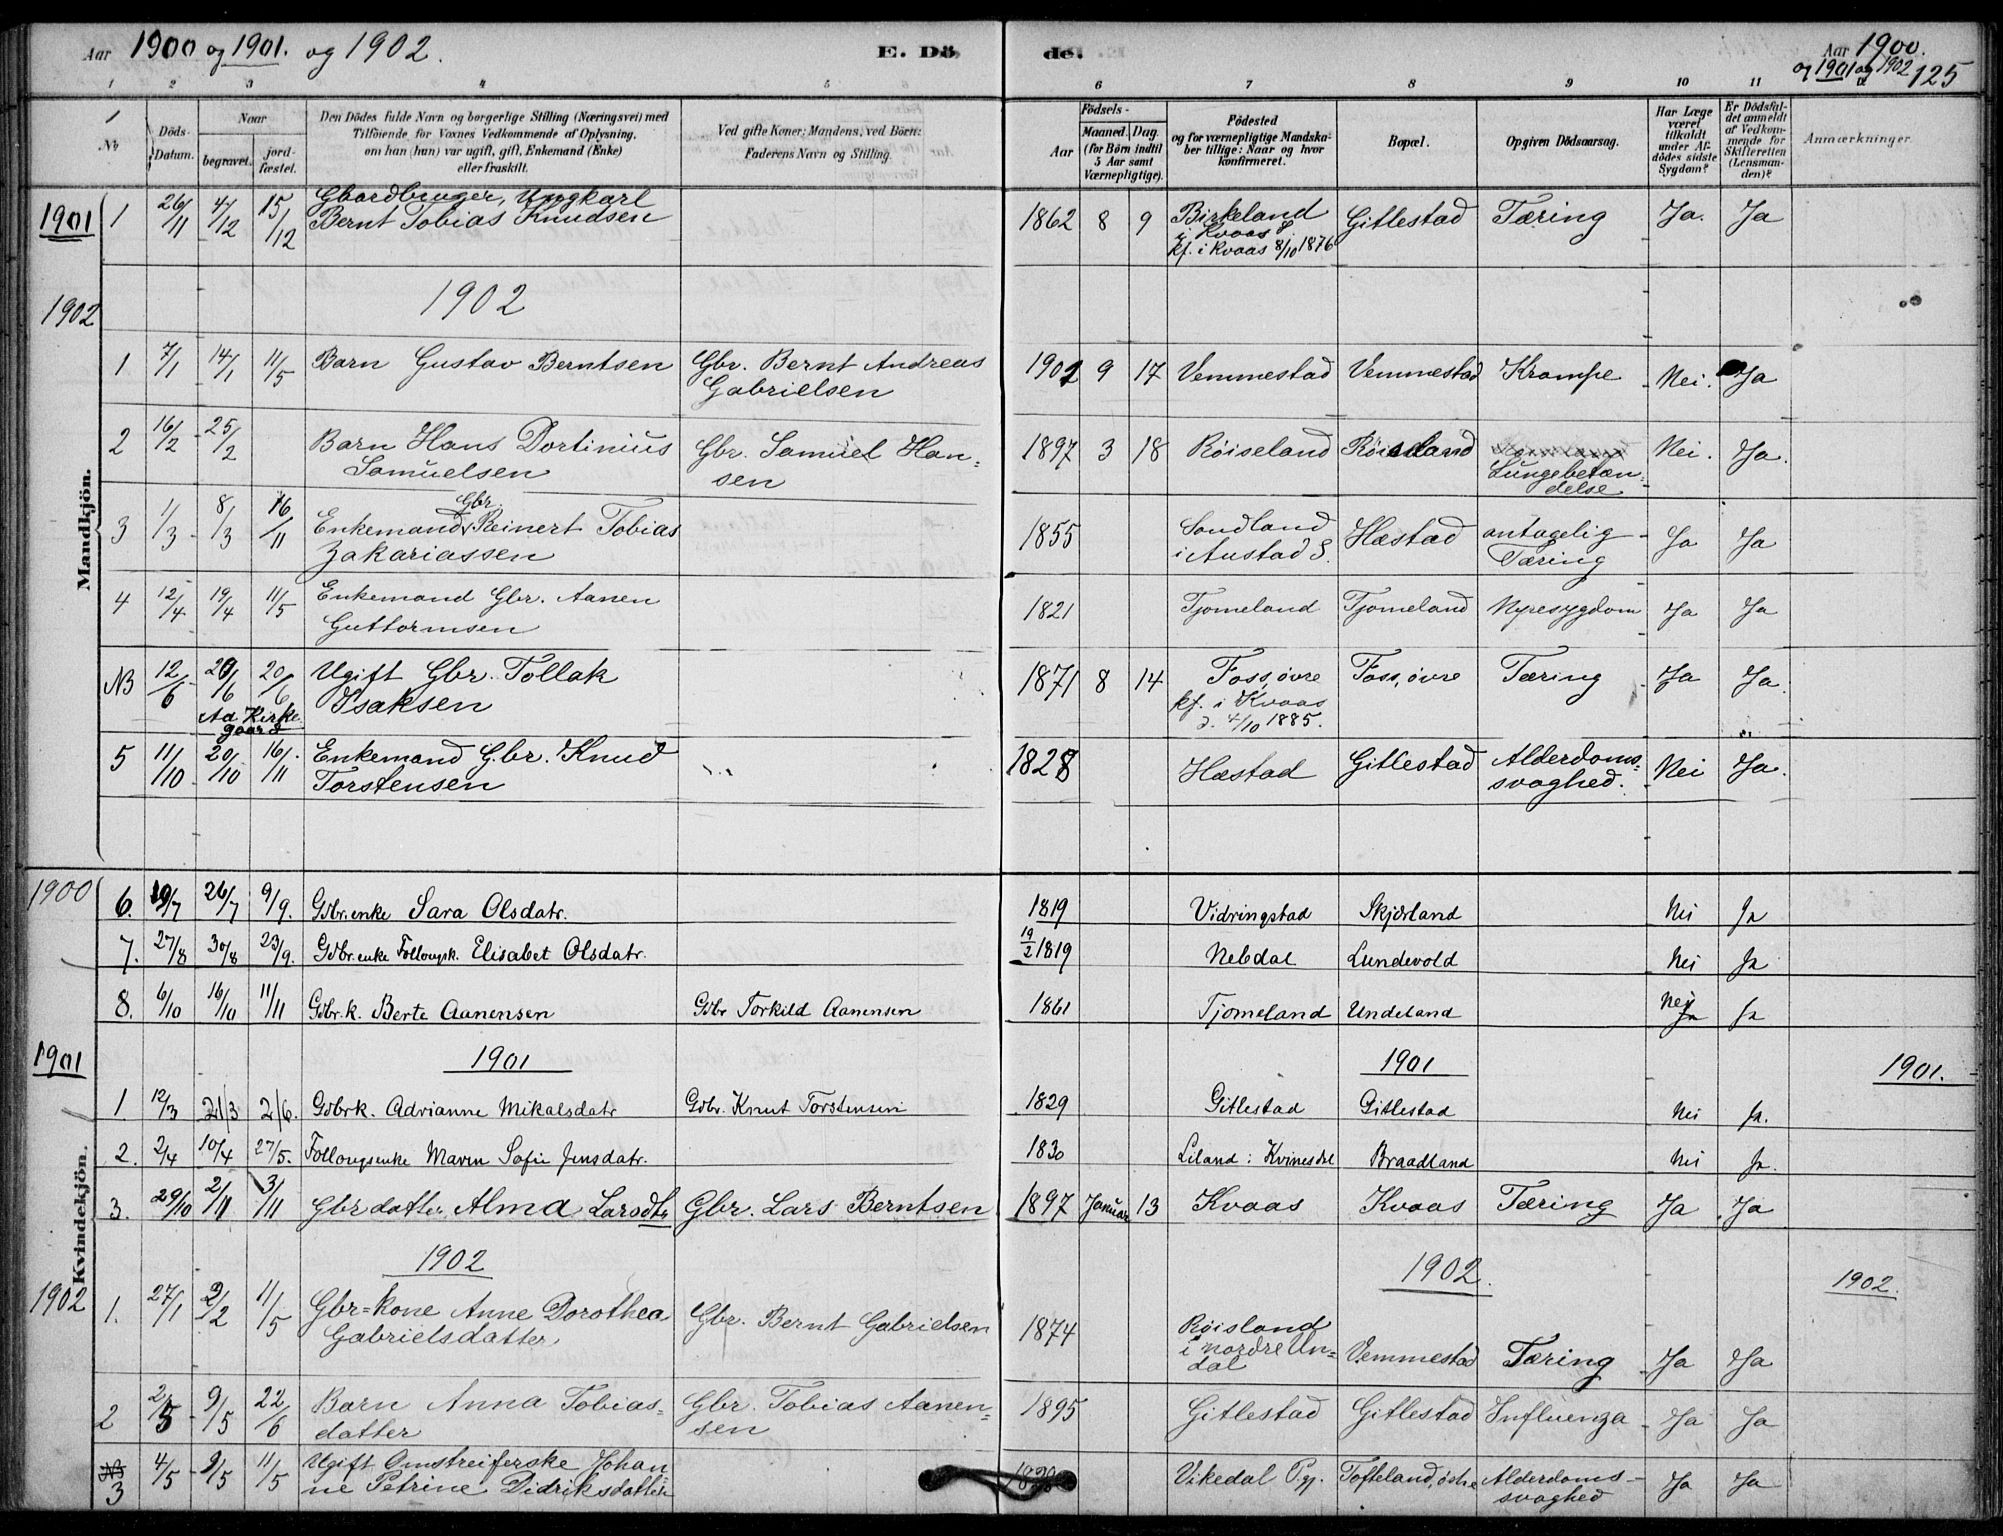 Aar 1900 og 1901. og 1902. E. Dö de. Aar 1900.
og 1901 og 1902 125
1 2 3 4 5 6 7 8 9 10 11
No
Döds-Datum.
Naar
begravet.
jordfæstet.
Den Dödes fulde Navn og borgerlige Stilling (Næringsvei) med
Tilföiende for Voxnes Vedkommende af Oplysning,
om han (hun) var ugift, gift, Enkemand (Enke)
eller fraskilt.
Ved gifte Koner: Mandens, ved Börn:
Faderens Navn og Stilling.
Födsels-
Aar
Maaned. Dag.
(for Börn indtil
5 Aar samt
Værnepligtige).
Födested
og for værnepligtige Mandska-
ber tillige: Naar og hvor
konfirmeret.
Bopæl.
Opgiven Dödsaarsag.
Har Læge
været
tilkaldt
under Af-
dödes sidste
Sygdom?
Er Dödsfal-
det anmeldt
af Vedkom-
mende for
Skifteretten
(Lensman-
den)?
Anmærkninger
Mandkjön.
1901 1 26/11 4/12 15/12 Gbardbruger, Ungkarl
Bernt Tobias Knudsen 1862 8 9 Birkeland
i Kvaas S.
kf. i Kvaas 8/10 1876 Gitlestad Tæring Ja. Ja
1902 1902
1 7/1 14/1 11/5 Barn Gustav Berntsen Gbr. Bernt Andreas
Gabrielsen 1902 9 17 Vemmestad Vemmestad Krampe Nei. Ja
2 16/2 25/2 Barn Hans Dortinius
Samuelsen Gbr. Samuel Han-
sen 1897 3 18 Røiseland Røiseland
Lungebetæn-
delse Nei. Ja.
3 1/3 8/3 16/11 Enkemand Gbr. Reinert Tobias
Zakariassen 1855 Sandland
i Austad S. Hæstad antagelig
Tæring Ja Ja
4 12/4 19/4 11/5 Enkemand Gbr. Aanen
Guttormsen 1821 Tjomeland Tjomeland Nyresygdom Ja Ja
NB 12/6 20/6 20/6 Ugift Gbr. Tollak
Isaksen 1871 8 14 Foss, øvre
kf. i Kvaas
d. 4/10 1885. Foss, øvre Tæring Ja Ja.
Aa. Kirke-
gaard
5 11/10 20/10 16/11 Enkemand Gbr. Knud
Torstensen 1828 Hæstad Gitlestad Alderdoms-
svaghed. Nei Ja.
Kvindekjön.
1900 6. 19/7 26/7 9/9. Gdbr.enke Sara Olsdatr. 1819 Vidringstad Skjærland Nei Ja
7. 27/8 30/8 23/9. Gdbr.enke Follougsk. Elisabet Olsdatr. 19/2 1819 Nebdal Lundevold Nei Ja
8. 6/10 16/10 11/11 Gdbr.k. Berte Aanensen Gdbr Torkild Aanensen 1861 Tjomeland Undeland Nei Ja Ja
1901 1901 1901 1901.
1 12/3 21/3 2/6. Gdbrk. Adrianne Mikalsdatr Gdbr. Knut Torstensen 1829 Gitlestad Gitlestad Nei Ja.
2. 2/4 10/4 27/5. Follougsenke Maren Sofie Jensdatr. 1830 Liland i Kvinesdal Braadland Nei Ja.
3. 29/10 2/11 3/11 Gbrdatter Alma Larsdtr Gbr. Lars Berntsen 1897 Januar 13 Kvaas Kvaas Tæring Ja Ja
1902 1902. 1902.
1902 1. 27/1 2/2 11/5 Gbr=kone Anne Dorothea
Gabrielsdatter Gbr. Bernt Gabrielsen 1874 Røisland
i nordre Un-
dal Vemmestad Tæring Ja Ja
2 2/5 9/5 22/6 Barn Anna Tobias-
datter Gbr. Tobias Aanen-
sen 1895 Gitlestad Gitlestad Influenza Ja Ja
3 4/5 9/5 11/5 Ugift Omstreiferske Johan-
ne Petrine Didriksdatter Vikedal P.gj. Tofteland, østre Alderdoms-
svaghed Ja Ja